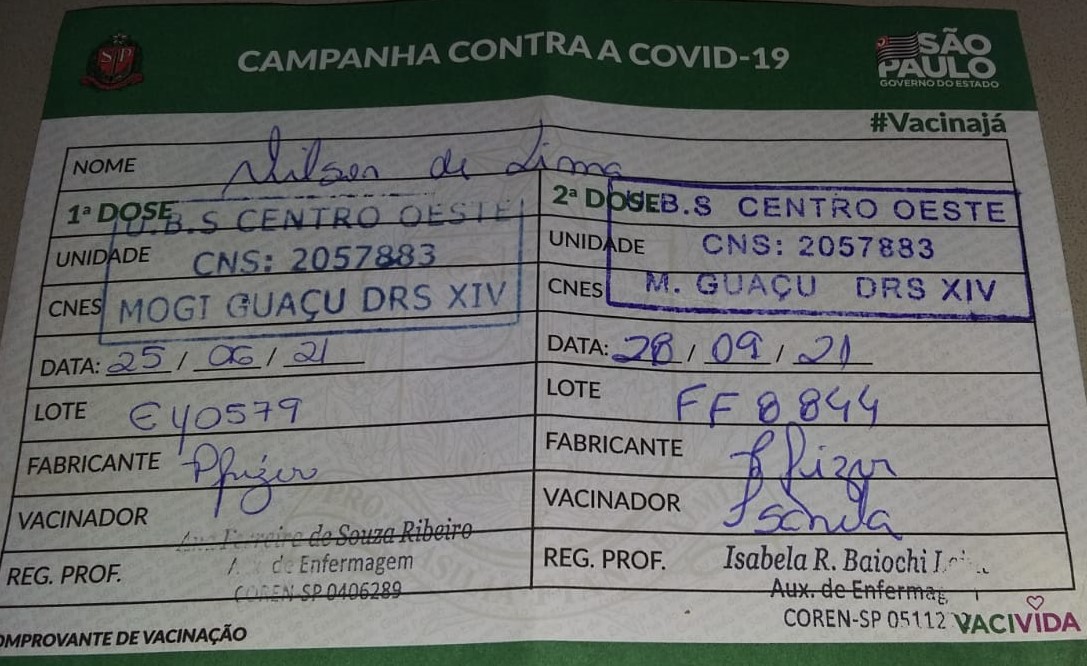 SP
CAMPANHA CONTRA A COVID-19
SÃO
PAULO
GOVERNO DO ESTADO
#Vacinajá
NOME Nilson de Lima
1ª DOSE U.B.S CENTRO OESTE
UNIDADE CNS: 2057883
CNES MOGI GUAÇU DRS XIV
DATA: 25 / 06 / 21
LOTE EY0579
FABRICANTE Pfizer
VACINADOR
de Souza Ribeiro
REG. PROF. de Enfermagem
COREN-SP 0406289
2ª DOSE U.B.S CENTRO OESTE
UNIDADE CNS: 2057883
CNES M. GUAÇU DRS XIV
DATA: 28 / 09 / 21
LOTE FF8844
FABRICANTE Pfizer
VACINADOR
REG. PROF. Isabela R. Baiochi
Aux. de
COREN-SP
OMPROVANTE DE VACINAÇÃO
VACIVIDA